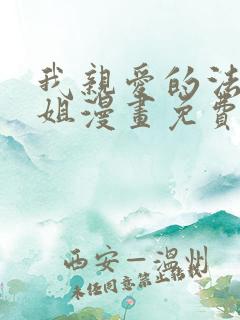 我親愛的法
姐漫畫免費
西安–溫州
未任同意禁止轉載